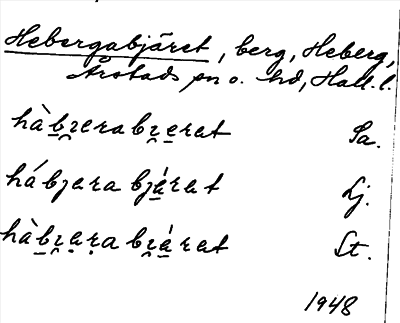 Hebergabjäret, berg, Heberg,
Årstads sn o. hd, Hall. l.
hàb̯ʒerab̯ʒe̱rat Sa.
hábʒarabʒá̱rat Lj.
hàb̯ʒa̱ṛab̯ʒá̱rat St.
1948